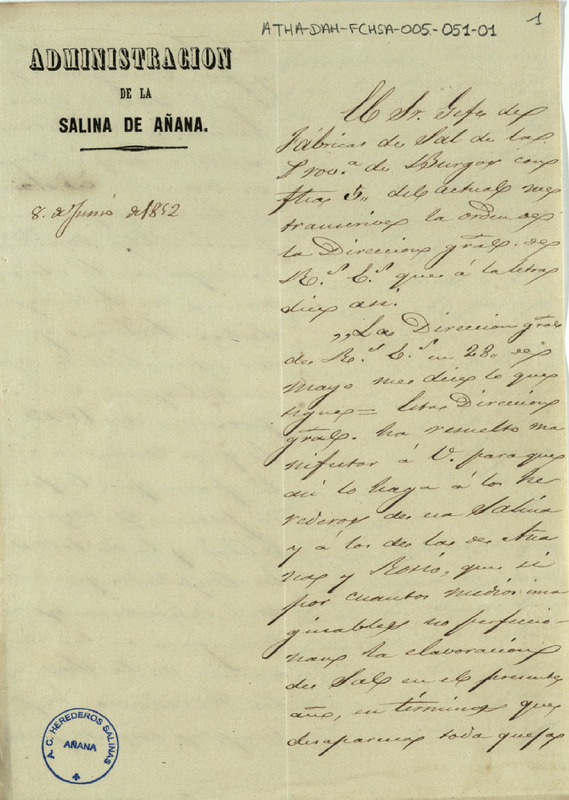 ATHA-DAH-FCHSA-005-051-01
1
ADMINISTRACION
DE LA
SALINA DE AÑANA.
8. de Junio de 1852
El Sr. Gefe de
Fábricas de Sal de la
Prov.a de Burgos con
fha 5,, del actual me
transcrive la orden de
la Direccion gral. de
R.s E.s que á la letra
dice asi.
,,La Direccion gral
de R.s E.s en 28,, de
Mayo me dice lo que
sigue = Esta Direccion
gral. ha resuelto ma
nifestar á V. para que
asi lo haga á los he
rederos de esa Salina
y á los de las de Aña
na y Rosío, que si
por cuantos medios ima
ginables no perfeccio
nan la elavoracion
de Sal en el presente
año, en términos que
desaparezca toda queja
A. C. HEREDEROS SALINAS
AÑANA